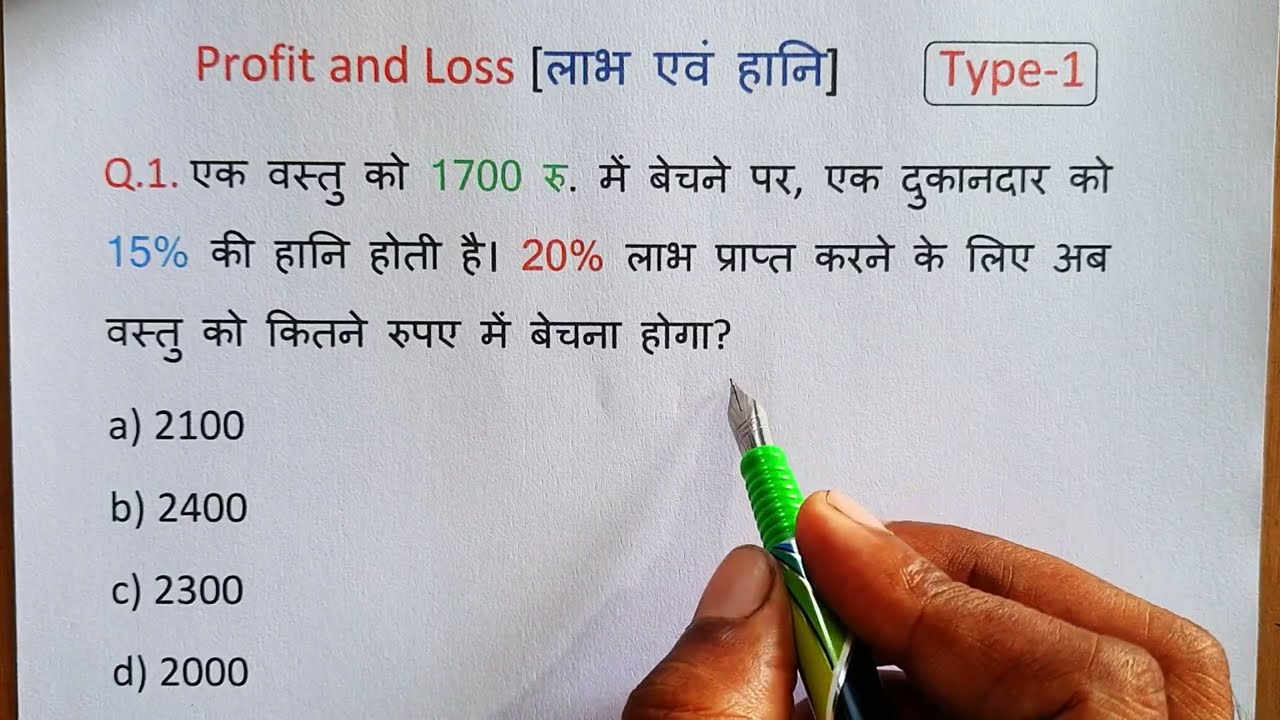 Profit and Loss [लाभ एवं हानि] Type-1
Q.1. एक वस्तु को 1700 रु. में बेचने पर, एक दुकानदार को
15% की हानि होती है। 20% लाभ प्राप्त करने के लिए अब
वस्तु को कितने रुपए में बेचना होगा?
a) 2100
b) 2400
c) 2300
d) 2000